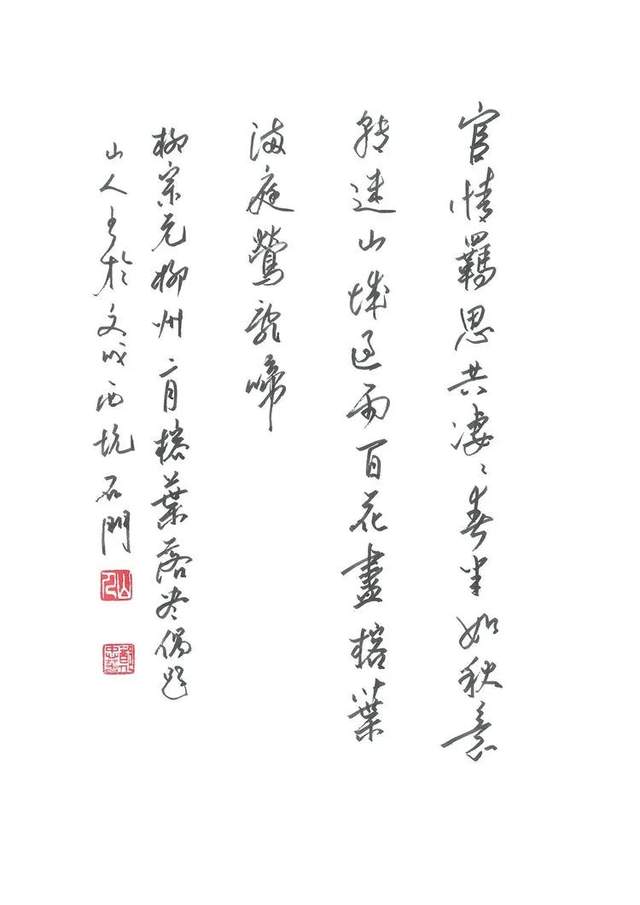 宦情羈思共淒〻春半如秋意
轉迷山城過雨百花盡榕葉
滿庭鶯亂啼
柳宗元柳州二月榕葉落尽偶題
山人书於文成西坑石門
山人